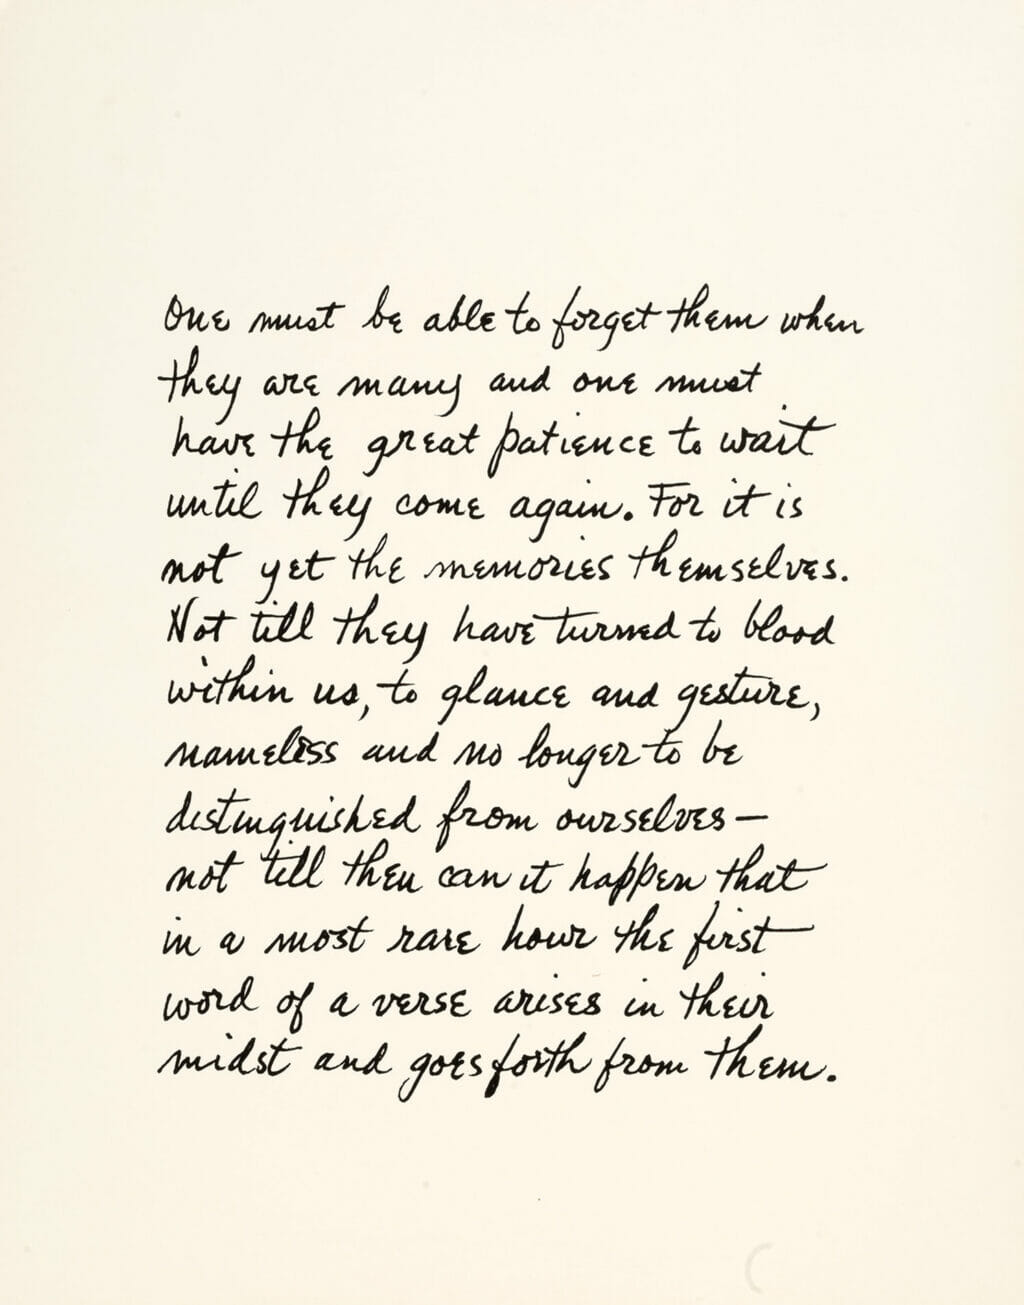 One must be able to forget them when
they are many and one must
have the great patience to wait
until they come again. For it is
not yet the memories themselves.
Not till they have turned to blood
within us, to glance and gesture,
nameless and no longer to be
distinguished from ourselves—
not till then can it happen that
in a most rare hour the first
word of a verse arises in their
midst and goes forth from them.